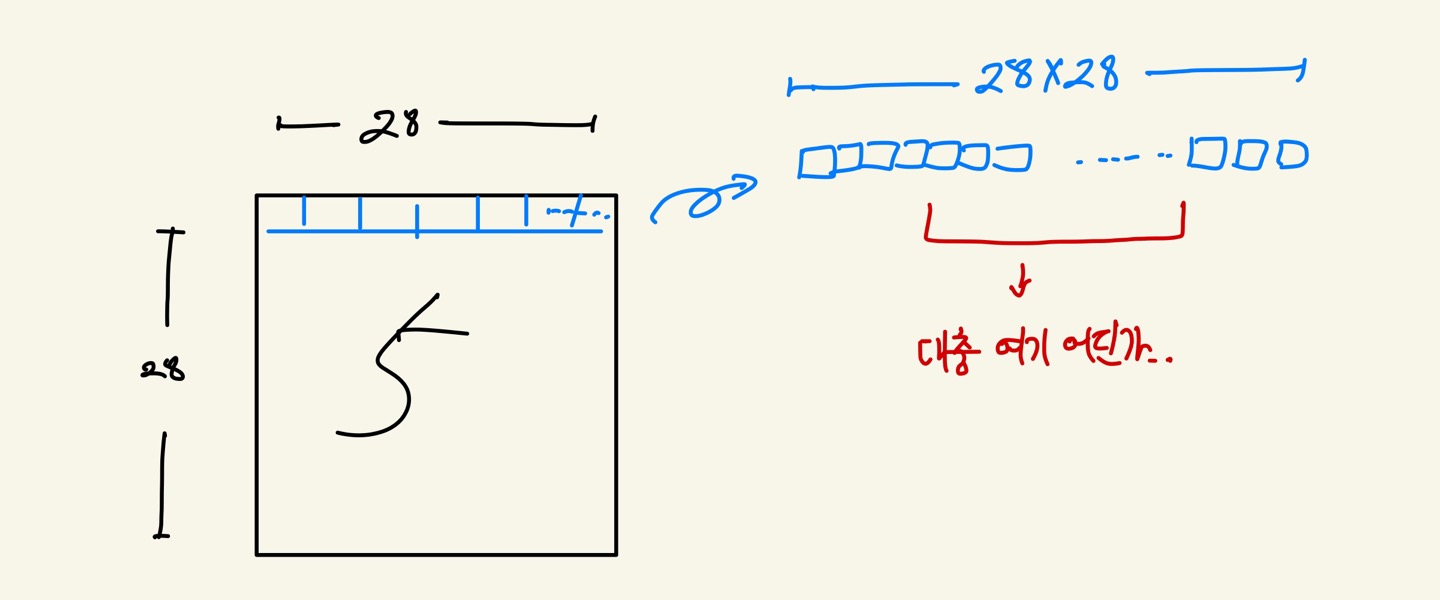 28
28
5
28×28
대충 여기 어딘가..